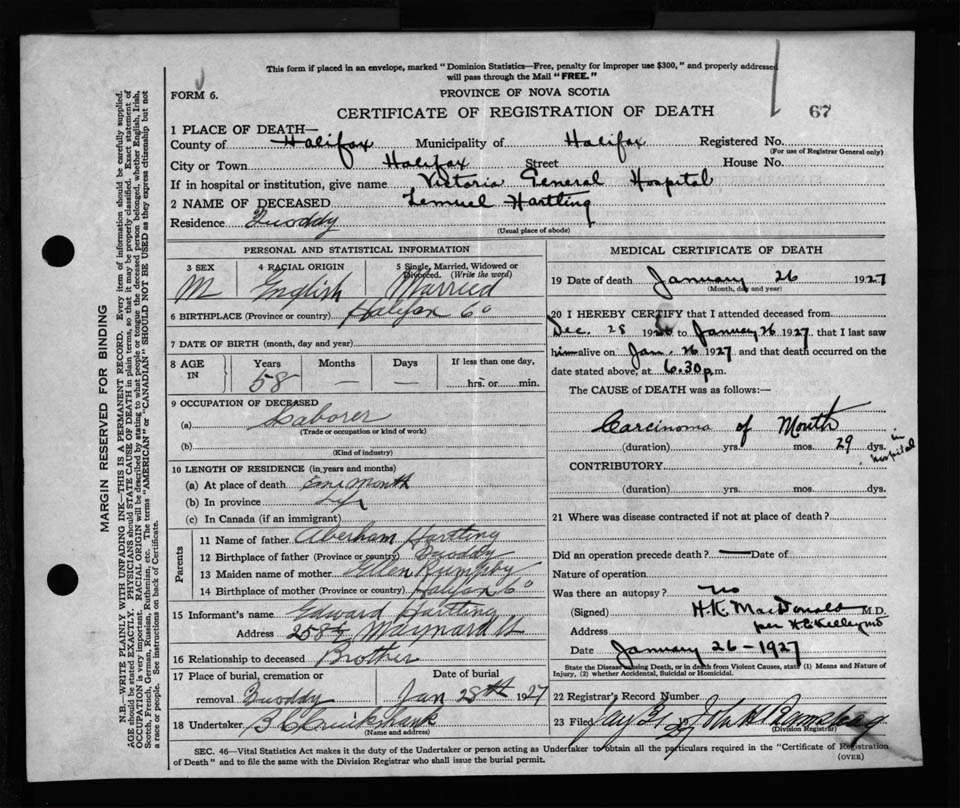 This form if placed in an envelope, marked "Dominion Statistics—Free, penalty for improper use $300," and properly addressed
will pass through the Mail "FREE."
FORM 6.
PROVINCE OF NOVA SCOTIA
CERTIFICATE OF REGISTRATION OF DEATH
67
1 PLACE OF DEATH—
County of Halifax Municipality of Halifax Registered No.
(For use of Registrar General only)
City or Town Halifax Street House No.
If in hospital or institution, give name Victoria General Hospital
2 NAME OF DECEASED Lemuel Hartling
Residence Quoddy
(Usual place of abode)
MARGIN RESERVED FOR BINDING
N.B.—WRITE PLAINLY WITH UNFADING INK—THIS IS A PERMANENT RECORD. Every item of information should be carefully supplied.
AGE should be stated EXACTLY. PHYSICIANS should STATE CAUSE OF DEATH in plain terms, so that it may be properly classified. Exact statement of
OCCUPATION is very important. RACIAL ORIGIN will be described by stating to what people or tongue the deceased person belonged, whether English, Irish,
Scotch, French, German, Russian, Ruthenian, etc. The terms "AMERICAN" or "CANADIAN" SHOULD NOT BE USED as they express citizenship but not
a race or people. See instructions on back of Certificate.
PERSONAL AND STATISTICAL INFORMATION
3 SEX 4 RACIAL ORIGIN 5 Single, Married, Widowed or
Divorced. (Write the word)
M English Married
6 BIRTHPLACE (Province or country) Halifax Co
7 DATE OF BIRTH (month, day and year)
8 AGE IN Years Months Days If less than one day,
58 — — hrs. or min.
9 OCCUPATION OF DECEASED
(a) Laborer
(Trade or occupation or kind of work)
(b)
(Kind of industry)
10 LENGTH OF RESIDENCE (in years and months)
(a) At place of death One Month
(b) In province Life
(c) In Canada (if an immigrant)
Parents
11 Name of father Aberham Hartling
12 Birthplace of father (Province or country) Quoddy
13 Maiden name of mother Ellen Rumpby
14 Birthplace of mother (Province or country) Halifax Co
15 Informant's name Edward Hartling
Address 258½ Maynard St
16 Relationship to deceased Brother
17 Place of burial, cremation or Date of burial
removal Quoddy Jan 28th 1927
18 Undertaker
(Name and address)
MEDICAL CERTIFICATE OF DEATH
19 Date of death January 26 1927
(Month, day and year)
20 I HEREBY CERTIFY that I attended deceased from
Dec. 28 1926 to January 26 1927, that I last saw
him alive on Jan. 26 1927 and that death occurred on
date stated above, at 6.30 p.m.
The CAUSE of DEATH was as follows:
Carcinoma of Mouth
(duration) yrs. mos. 29 dys. in hospital
CONTRIBUTORY
(duration) yrs. mos. dys.
21 Where was disease contracted if not at place of death?
Did an operation precede death? — Date of
Nature of operation
Was there an autopsy? No
(Signed) H.K. MacDonald M.D.
Address per H E Kelley MD
Date January 26-1927
State the Disease causing Death, or in death from Violent Causes, state (1) Means and Nature of
Injury, (2) whether Accidental, Suicidal or Homicidal.
22 Registrar's Record Number
23 Filed John
(Division Registrar)
SEC. 46—Vital Statistics Act makes it the duty of the Undertaker or person acting as Undertaker to obtain all the particulars required in the "Certificate of Registration
of Death" and to file the same with the Division Registrar who shall issue the burial permit.
(OVER)